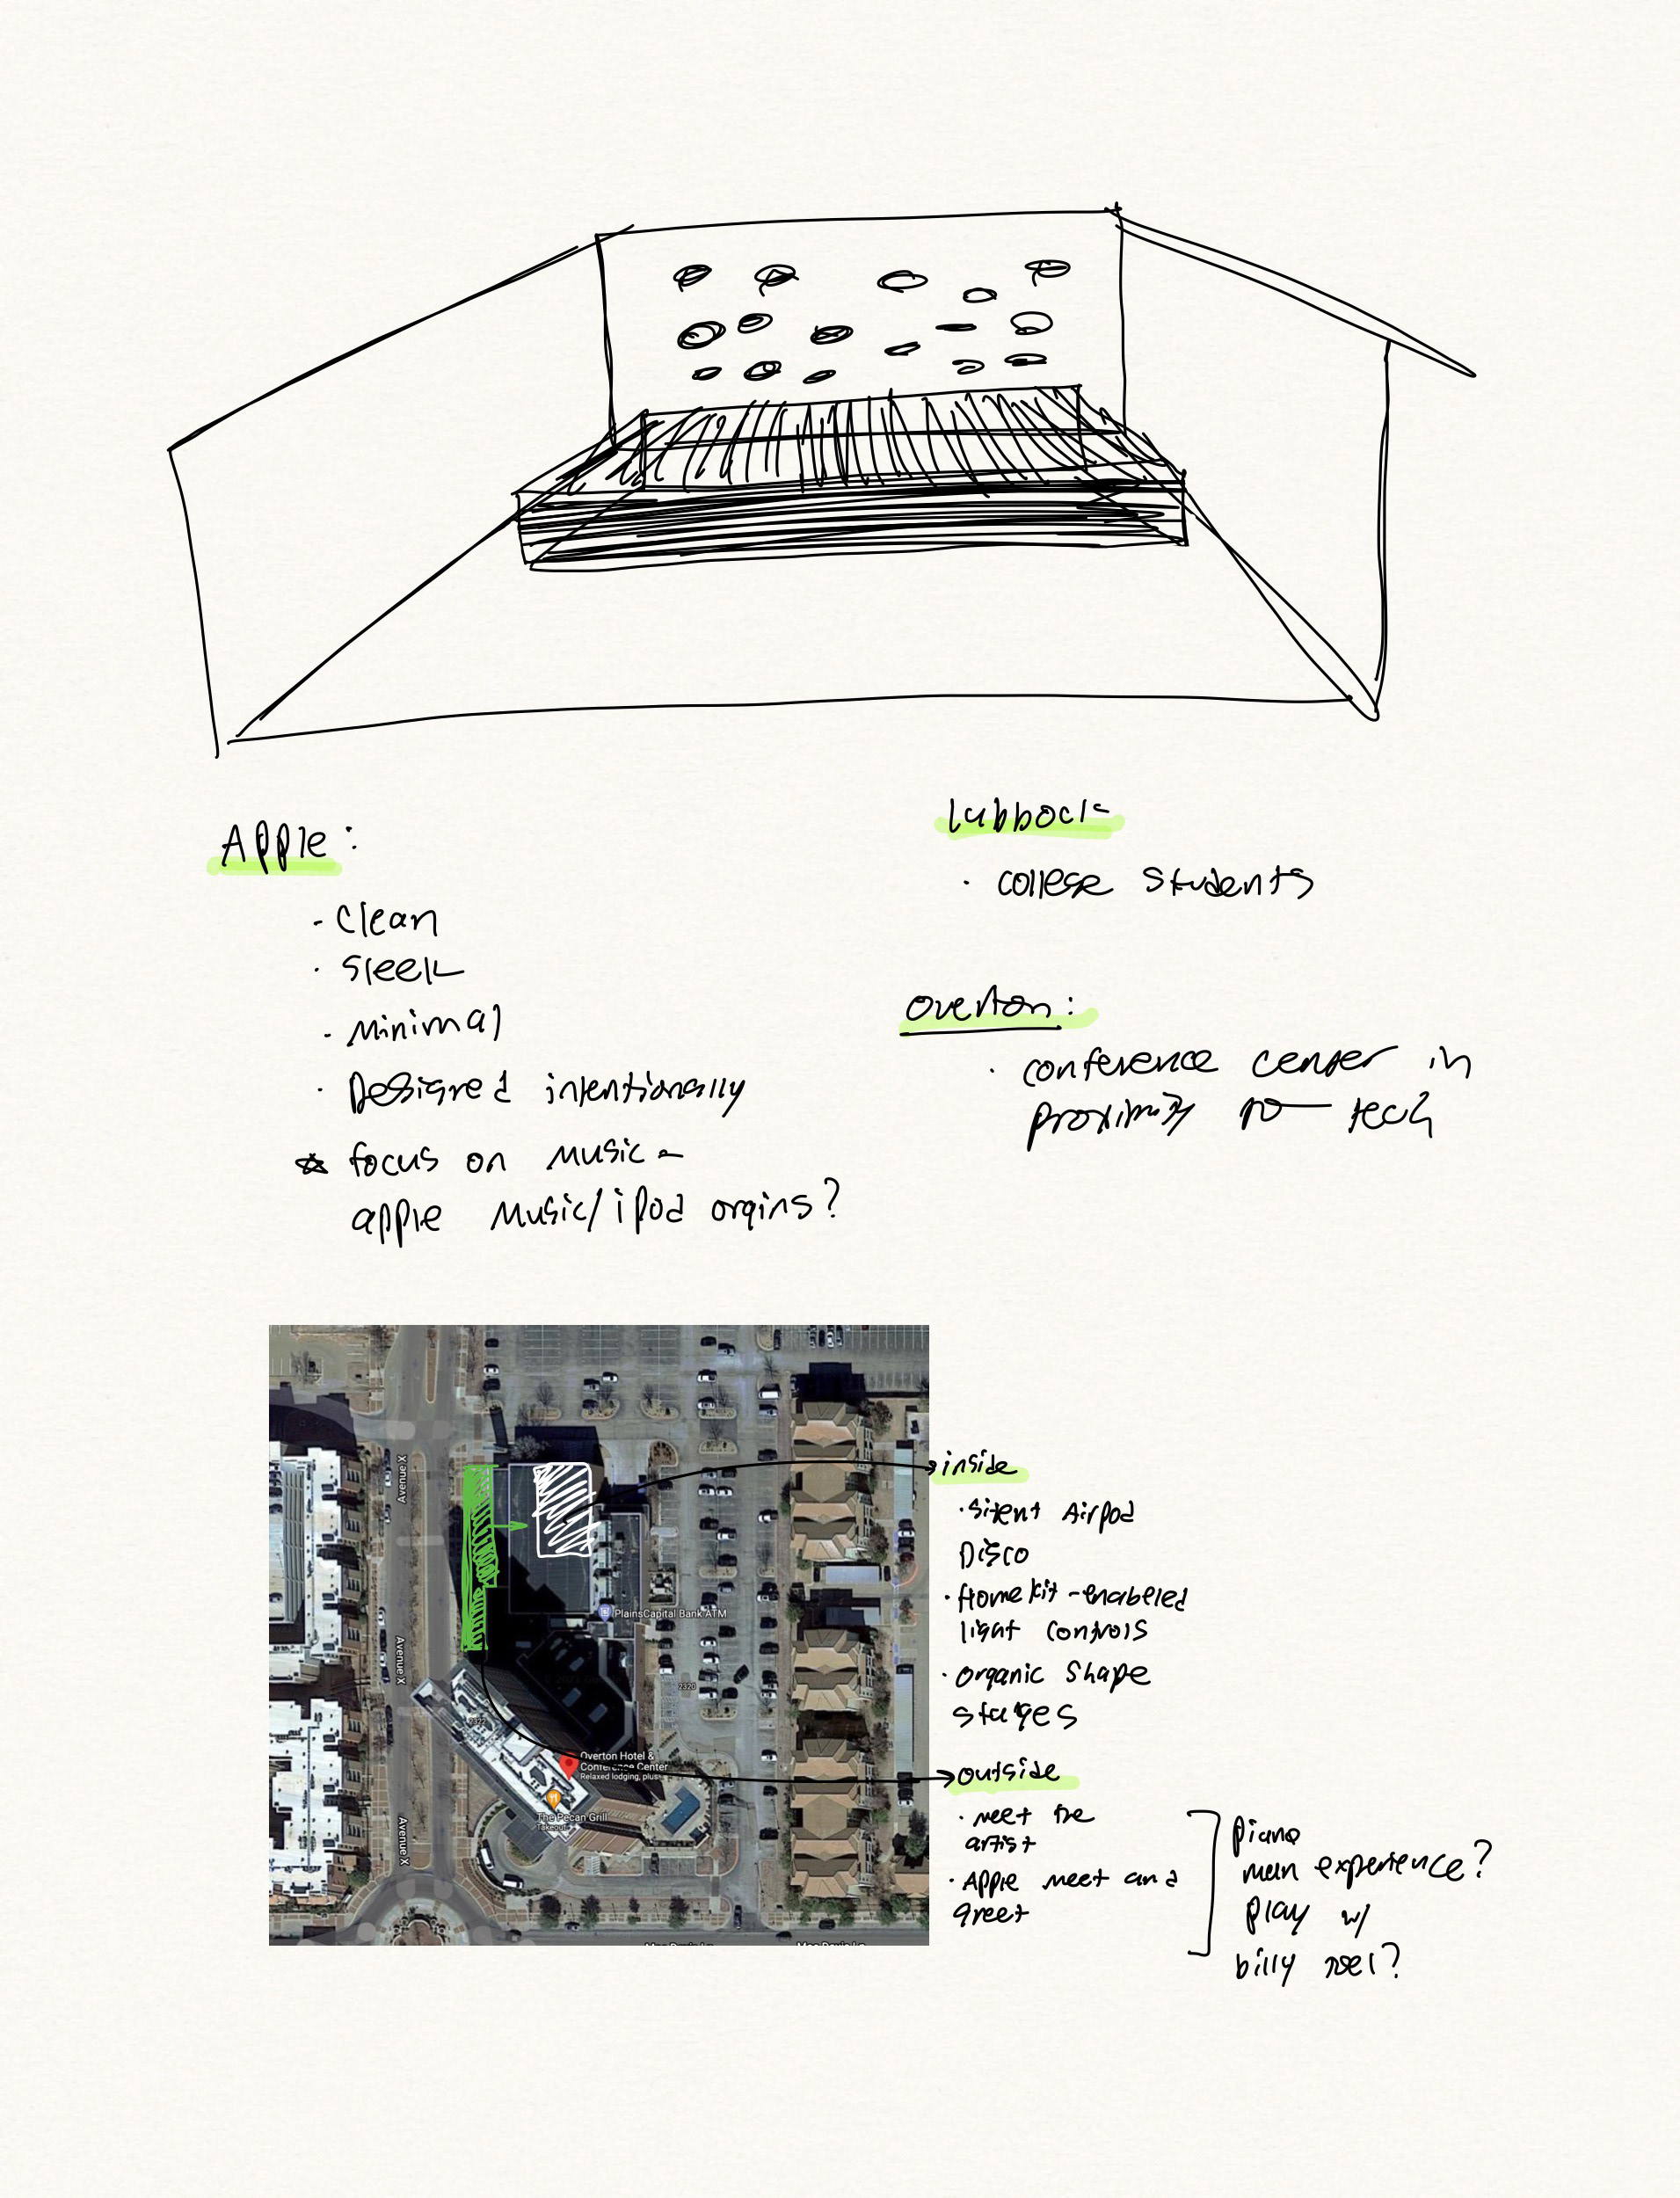 Apple:
- clean
· sleek
- minimal
· Designed intentionally
☆ focus on music -
apple music/ipod orgins?
lubbock
· college students
overton:
· conference center in
proximity to tech
Avenue X
Avenue X
Avenue X
PlainsCapital Bank ATM
2320
2322
Overton Hotel &
Conference Center
Relaxed lodging, plus
The Pecan Grill
Takeout
inside
· silent Airpod
Disco
· Homekit-enabeled
light controls
· organic shape
stages
outside
· meet the
artist
· Apple meet and
greet
piano
man experience?
play w/
billy joel?